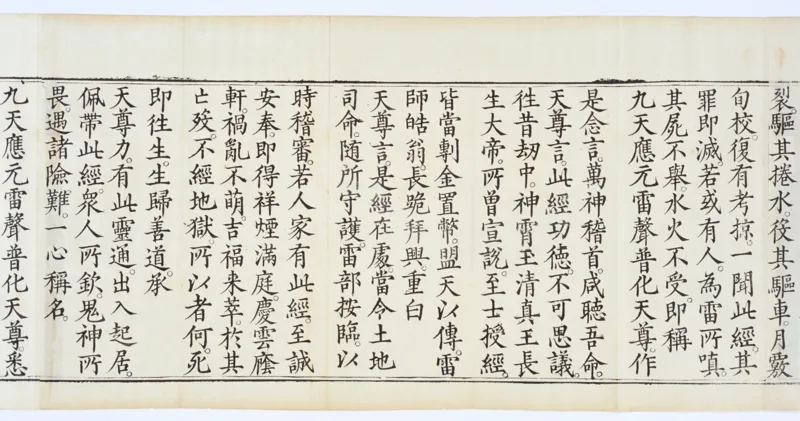 裂。驅其捲水。役其驅車。月覈
旬校。復有考掠。一聞此經。其
罪即滅。若或有人。為雷所嗔。
其屍不舉。水火不受。即稱
九天應元雷聲普化天尊。作
是念言。萬神稽首。咸聽吾命。
天尊言。此經功德。不可思議。
徃昔劫中。神霄玉清真王長
生大帝。所曾宣說。至士授經。
皆當剸金置幣。盟天以傳。雷
師皓翁。長跪拜興。重白
天尊言。是經在處。當令土地
司命。随所守護。雷部按臨。以
時稽審。若人家有此經。至誠
安奉。即得祥煙滿庭。慶雲廕
軒。禍亂不萌。吉福来萃。於其
亡歿。不經地獄。所以者何。死
即徃生。生歸善道。承
天尊力。有此靈通。出入起居。
佩帶此經。衆人所欽。鬼神所
畏。遇諸險難。一心稱名。
九天應元雷聲普化天尊。悉